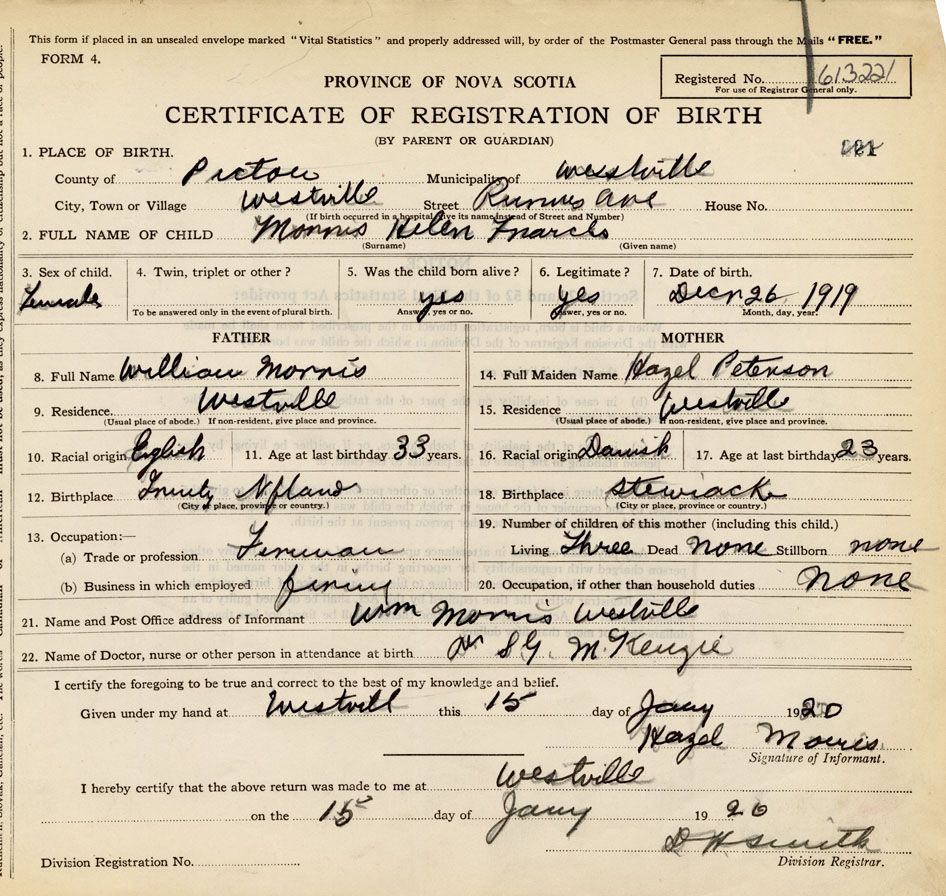 This form if placed in an unsealed envelope marked "Vital Statistics" and properly addressed will, by order of the Postmaster General pass through the Mails "FREE."
FORM 4.
Registered No. 613221
For use of Registrar General only.
PROVINCE OF NOVA SCOTIA
CERTIFICATE OF REGISTRATION OF BIRTH
(BY PARENT OR GUARDIAN)
1. PLACE OF BIRTH.
County of Pictou Municipality of Westville
City, Town or Village Westville Street Ave House No.
(If birth occurred in a hospital give its name instead of Street and Number)
2. FULL NAME OF CHILD Morris Helen
(Surname) (Given name)
3. Sex of child. 4. Twin, triplet or other? 5. Was the child born alive? 6. Legitimate? 7. Date of birth.
Female yes yes Decr 26 1919
To be answered only in the event of plural birth. Answer, yes or no. Answer, yes or no. Month, day, year.
FATHER MOTHER
8. Full Name William Morris 14. Full Maiden Name Hazel Peterson
9. Residence. Westville 15. Residence Westville
(Usual place of abode.) If non-resident, give place and province. (Usual place of abode.) If non-resident, give place and province.
10. Racial origin English 11. Age at last birthday 33 years. 16. Racial origin Danish 17. Age at last birthday 23 years.
12. Birthplace Trinity Nfland 18. Birthplace Stewiacke
(City or place, province or country.) (City or place, province or country.)
19. Number of children of this mother (including this child.)
13. Occupation:—
(a) Trade or profession Fireman Living Three Dead none Stillborn none
(b) Business in which employed 20. Occupation, if other than household duties none
21. Name and Post Office address of Informant Wm Morris Westville
22. Name of Doctor, nurse or other person in attendance at birth Dr S G. McKenzie
I certify the foregoing to be true and correct to the best of my knowledge and belief.
Given under my hand at Westvill this 15 day of Jany 1920
Hazel Morris
Signature of Informant.
I hereby certify that the above return was made to me at Westville
on the 15 day of Jany 1920
D H Smith
Division Registration No. Division Registrar.